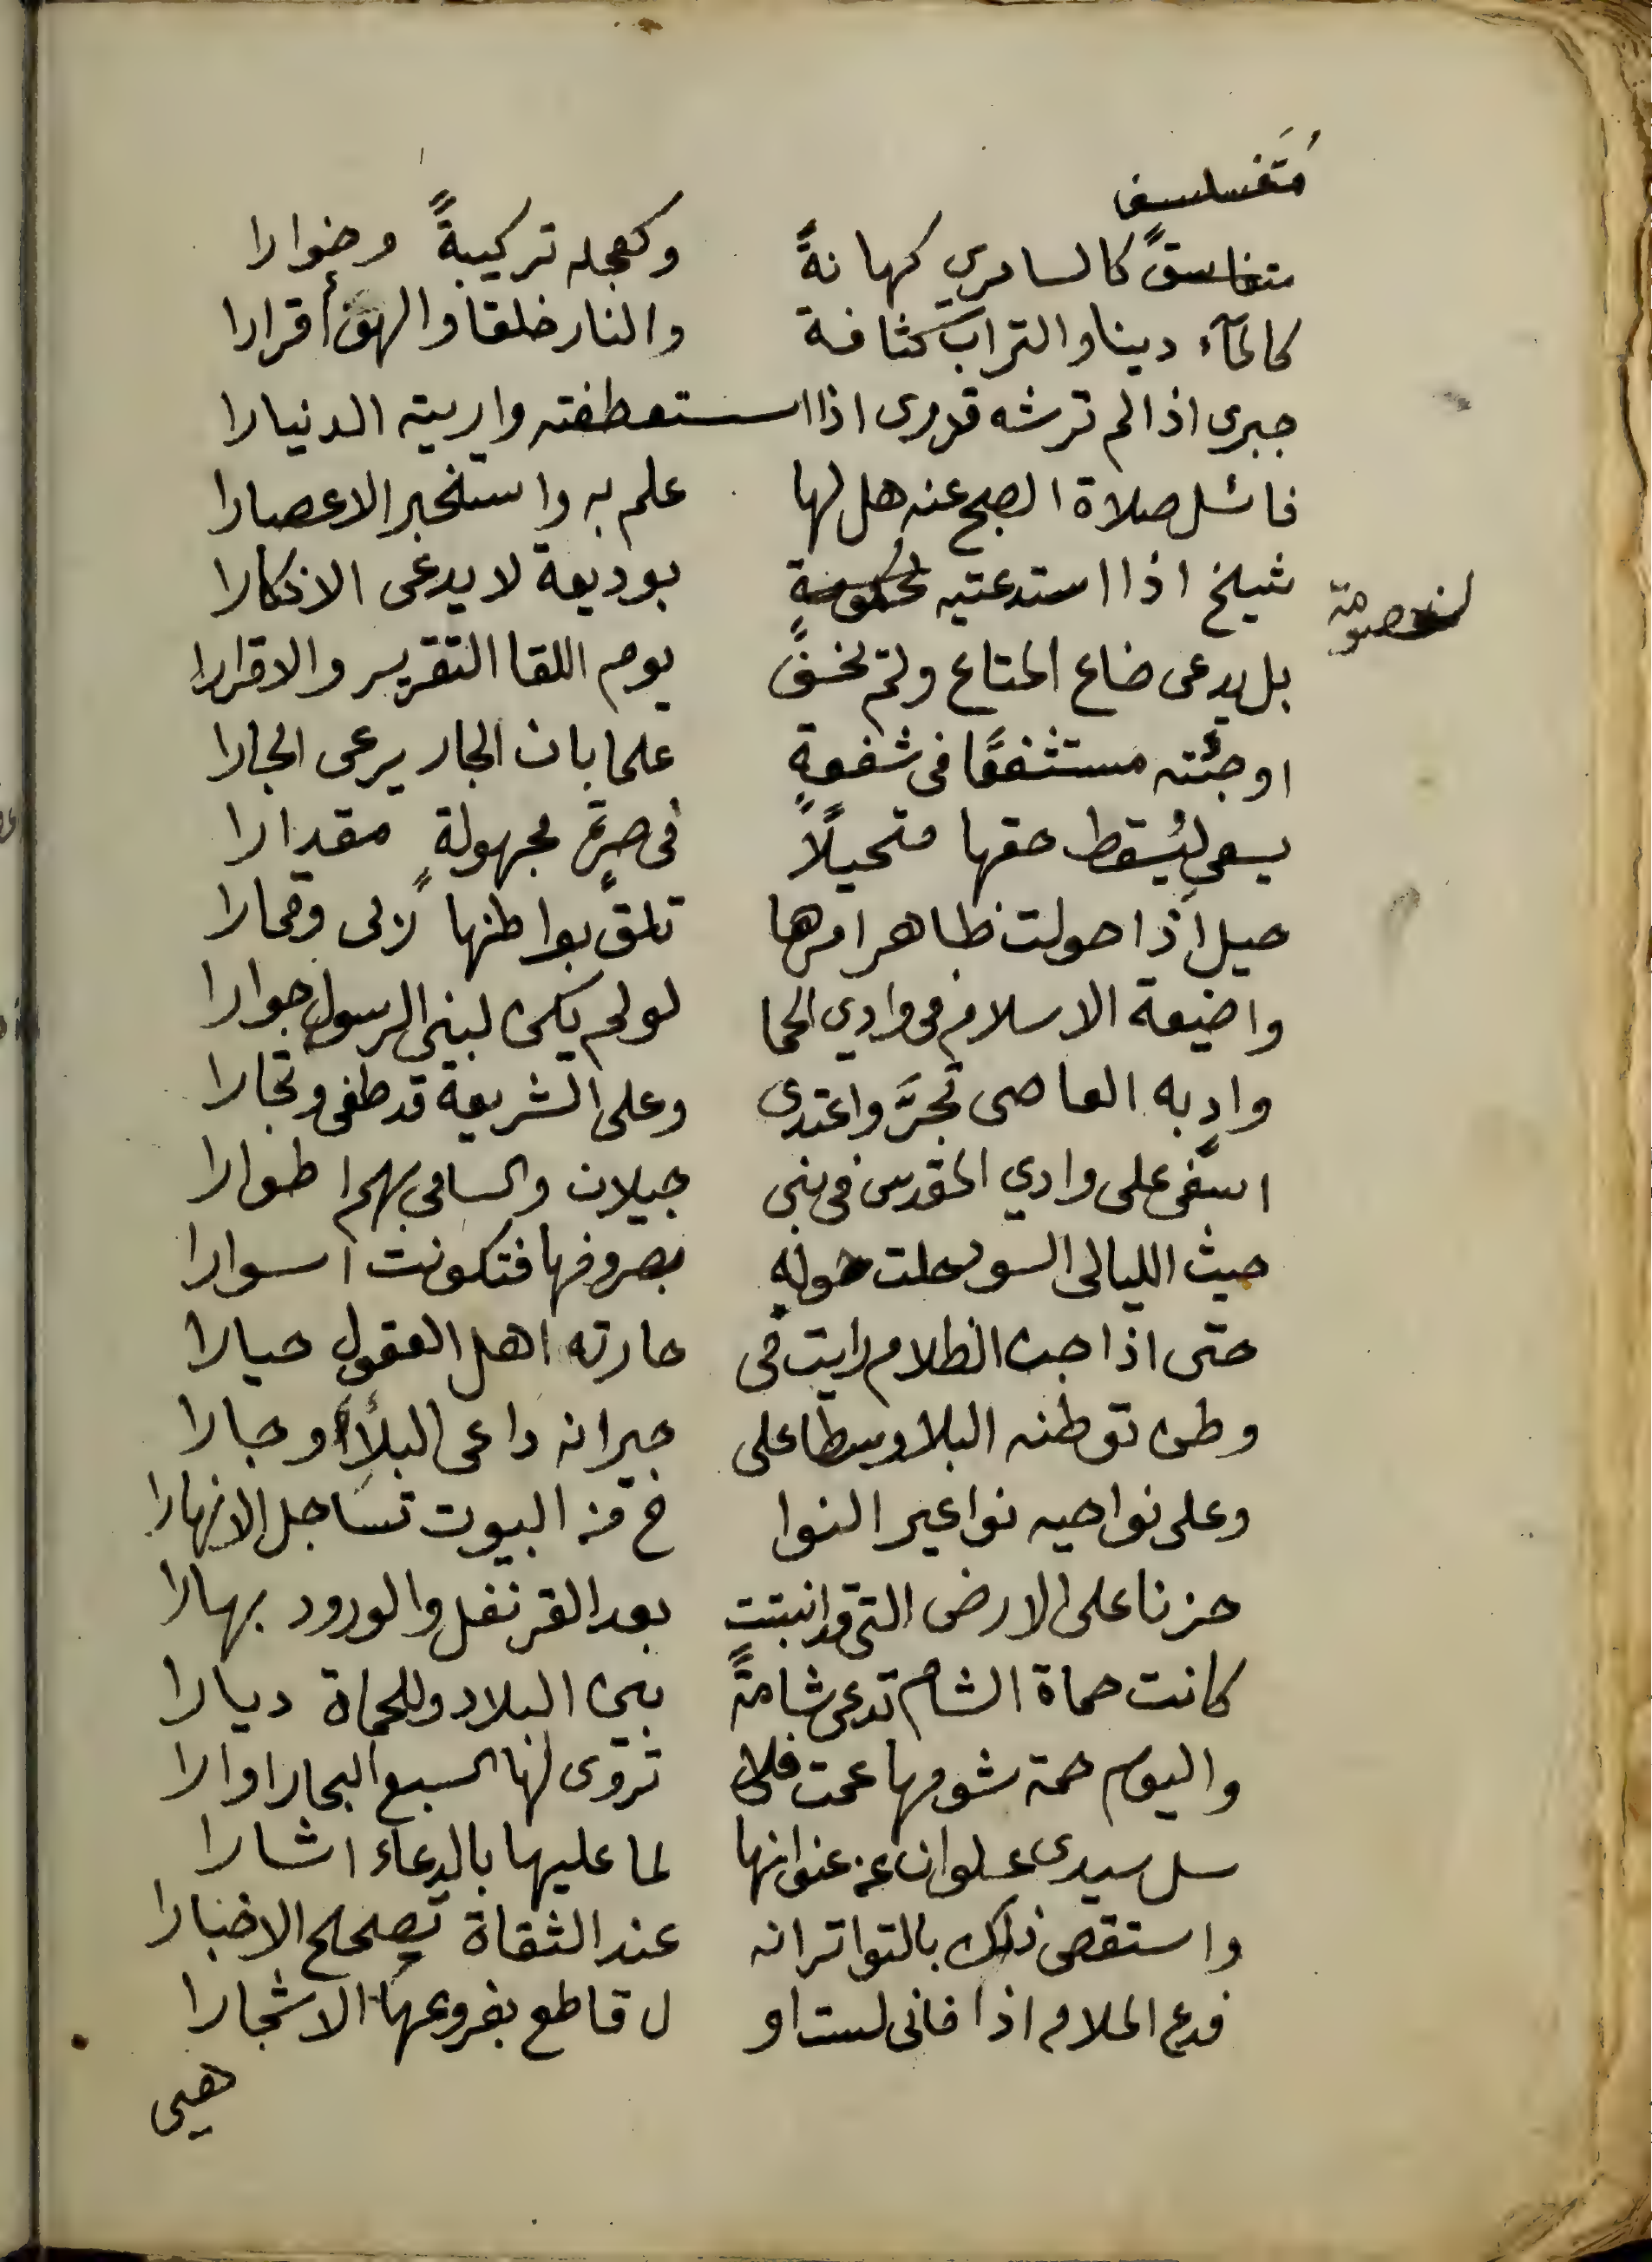 مُتَفلسف
متفاسقً كالسامري كهانةً وكعجله تركيبةً وخوارا
كالمآء دينا والتراب كثافة والنار خلقا والهوَٓا أقرارا
جبرى اذا لم ترشه قدرى اذا استعطفته واريته الدنيارا
فاسئل صلاة الصبح عنه هل لها علم به واستخبر الاعصارا
شيخ اذا استدعتيه لحكومةٍ بوديعة لا يدعى الانكارا
لخصومة
بل يدعى ضاع المتاع ولم يخف يوم اللقا التقرير والاقرارا
او جئته مستشفعًا فى شفعةٍ علما بان الجار يرعى الجارا
يسعى ليُسقط حقها متحيلاً فى صرةٍ مجهولةٍ مقدارا
حيل اذا حولت ظاهر امرها تلق بواطنها رًبى وقمارا
واضيعة الاسلام فى وادي الحما لو لم يكن لبني الرسول جوارا
وادٍ به العاصى تجرَّ واعتدى وعلى الشريعة قد طغى وتجارا
اسفى على وادي المقدس فى بنى جيلان والسامى بهم اطوارا
حيث الليالى السود حلت حوله بصروفها فتكونت اسوارا
حتى اذا جن الظلام رايت فى حارته اهل العقول حيارا
وطن توطنه البلا وسطا على جيرانه داعى البلاء وجارا
وعلى نواحيه نواعير النوا ح من البيوت تساجل الانهارا
حزنا على الارض التى قد انبتت بعد القرنفل والورود بهارا
كانت حماة الشام تدعى شامةً بين البلاد وللحماة ديارا
واليوم حمة شومها عمت فلا تروى لها السبع البحار اوارا
سل سيدى علوان عن عنوانها لما عليها بالدعاء اشارا
واستقصى ذلك بالتواتر انه عند الثقاة يصحح الاخبارا
فدع الملام اذا فانى لست او ل قاطع بفروعها الاشجارا
هيى